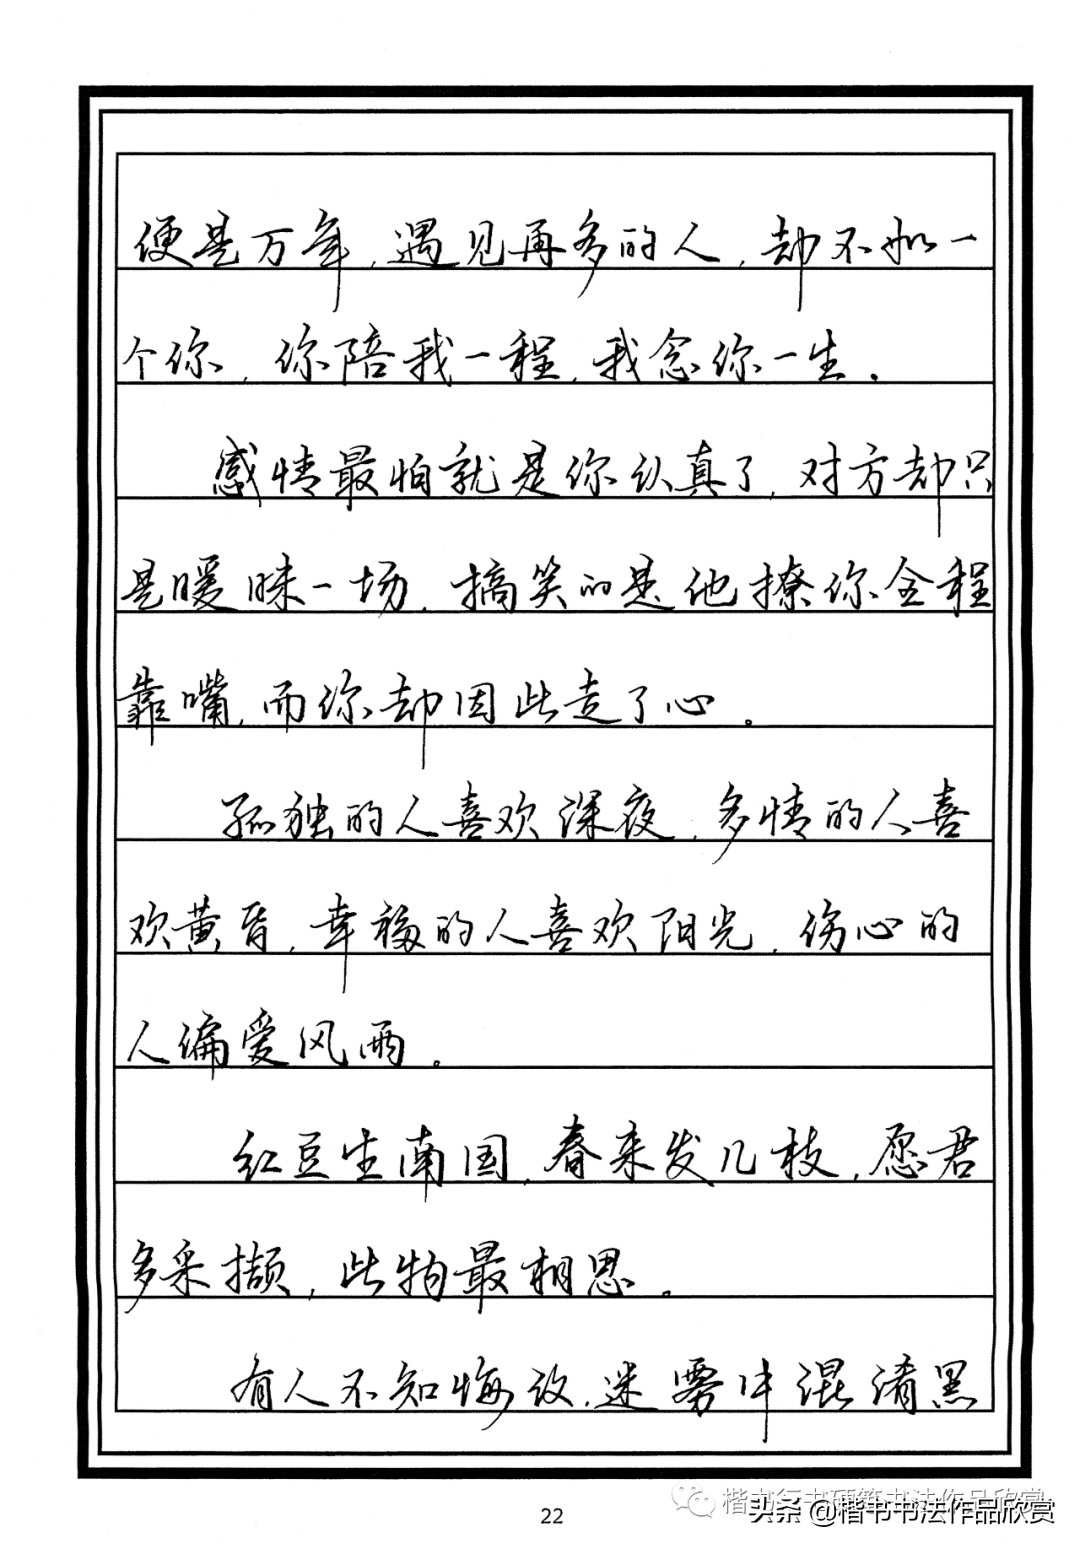 便是万年,遇见再多的人,却不如一
个你,你陪我一程,我念你一生.
感情最怕就是你认真了,对方却只
是暧昧一场,搞笑的是他撩你全程
靠嘴,而你却因此走了心。
孤独的人喜欢深夜,多情的人喜
欢黄昏,幸福的人喜欢阳光,伤心的
人偏爱风雨。
红豆生南国,春来发几枝,愿君
多采撷,此物最相思。
有人不知悔改,迷雾中混淆黑
22
楷书行书硬笔书法作品欣赏
头条 @楷书书法作品欣赏